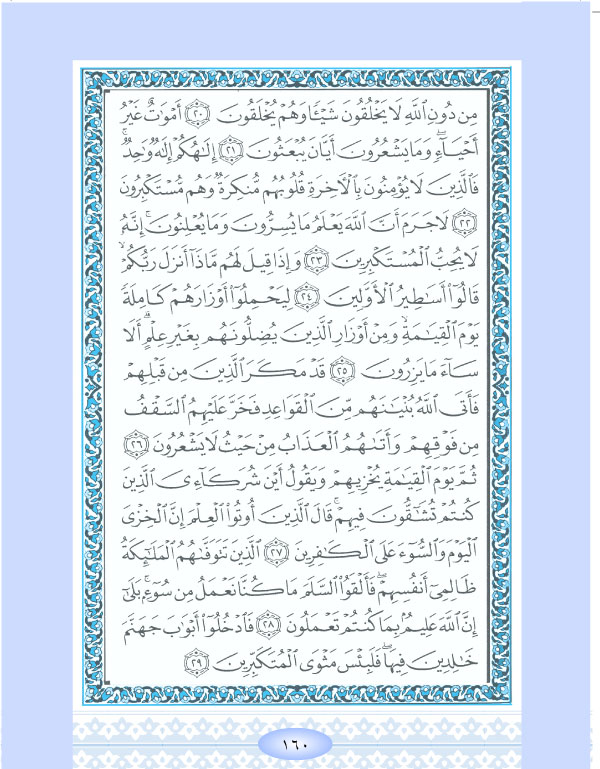 مِن دُونِ ٱللَّهِ لَا يَخْلُقُونَ شَيْـًٔا وَهُمْ يُخْلَقُونَ ٢٠ أَمْوَٰتٌ غَيْرُ
أَحْيَآءٍ ۖ وَمَا يَشْعُرُونَ أَيَّانَ يُبْعَثُونَ ٢١ إِلَـٰهُكُمْ إِلَـٰهٌ وَٰحِدٌ ۚ
فَٱلَّذِينَ لَا يُؤْمِنُونَ بِٱلْـَٔاخِرَةِ قُلُوبُهُم مُّنكِرَةٌ وَهُم مُّسْتَكْبِرُونَ
٢٢ لَا جَرَمَ أَنَّ ٱللَّهَ يَعْلَمُ مَا يُسِرُّونَ وَمَا يُعْلِنُونَ ۚ إِنَّهُ
لَا يُحِبُّ ٱلْمُسْتَكْبِرِينَ ٢٣ وَإِذَا قِيلَ لَهُم مَّاذَآ أَنزَلَ رَبُّكُمْ ۙ
قَالُوٓا۟ أَسَـٰطِيرُ ٱلْأَوَّلِينَ ٢٤ لِيَحْمِلُوٓا۟ أَوْزَارَهُمْ كَامِلَةً
يَوْمَ ٱلْقِيَـٰمَةِ ۙ وَمِنْ أَوْزَارِ ٱلَّذِينَ يُضِلُّونَهُم بِغَيْرِ عِلْمٍ ۗ أَلَا
سَآءَ مَا يَزِرُونَ ٢٥ قَدْ مَكَرَ ٱلَّذِينَ مِن قَبْلِهِمْ
فَأَتَى ٱللَّهُ بُنْيَـٰنَهُم مِّنَ ٱلْقَوَاعِدِ فَخَرَّ عَلَيْهِمُ ٱلسَّقْفُ
مِن فَوْقِهِمْ وَأَتَىٰهُمُ ٱلْعَذَابُ مِنْ حَيْثُ لَا يَشْعُرُونَ ٢٦
ثُمَّ يَوْمَ ٱلْقِيَـٰمَةِ يُخْزِيهِمْ وَيَقُولُ أَيْنَ شُرَكَآءِىَ ٱلَّذِينَ
كُنتُمْ تُشَـٰٓقُّونَ فِيهِمْ ۚ قَالَ ٱلَّذِينَ أُوتُوا۟ ٱلْعِلْمَ إِنَّ ٱلْخِزْىَ
ٱلْيَوْمَ وَٱلسُّوٓءَ عَلَى ٱلْكَـٰفِرِينَ ٢٧ ٱلَّذِينَ تَتَوَفَّىٰهُمُ ٱلْمَلَـٰٓئِكَةُ
ظَالِمِىٓ أَنفُسِهِمْ ۖ فَأَلْقَوُا۟ ٱلسَّلَمَ مَا كُنَّا نَعْمَلُ مِن سُوٓءٍۭ ۚ بَلَىٰٓ
إِنَّ ٱللَّهَ عَلِيمٌۢ بِمَا كُنتُمْ تَعْمَلُونَ ٢٨ فَٱدْخُلُوٓا۟ أَبْوَٰبَ جَهَنَّمَ
خَـٰلِدِينَ فِيهَا ۖ فَلَبِئْسَ مَثْوَى ٱلْمُتَكَبِّرِينَ ٢٩
١٦٠